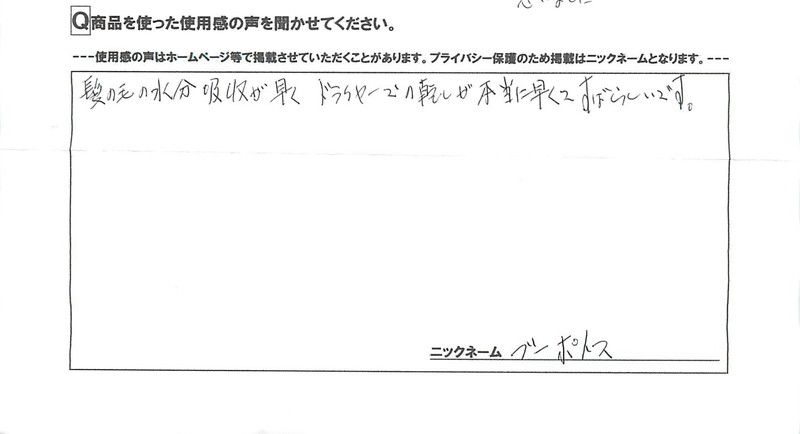 Q商品を使った使用感の声を聞かせてください。
---使用感の声はホームページ等で掲載させていただくことがあります。プライバシー保護のため掲載はニックネームとなります。---
髪の毛の水分吸収が早く ドライヤーでの乾しが本当に早くて すばらしいです。
ニックネーム